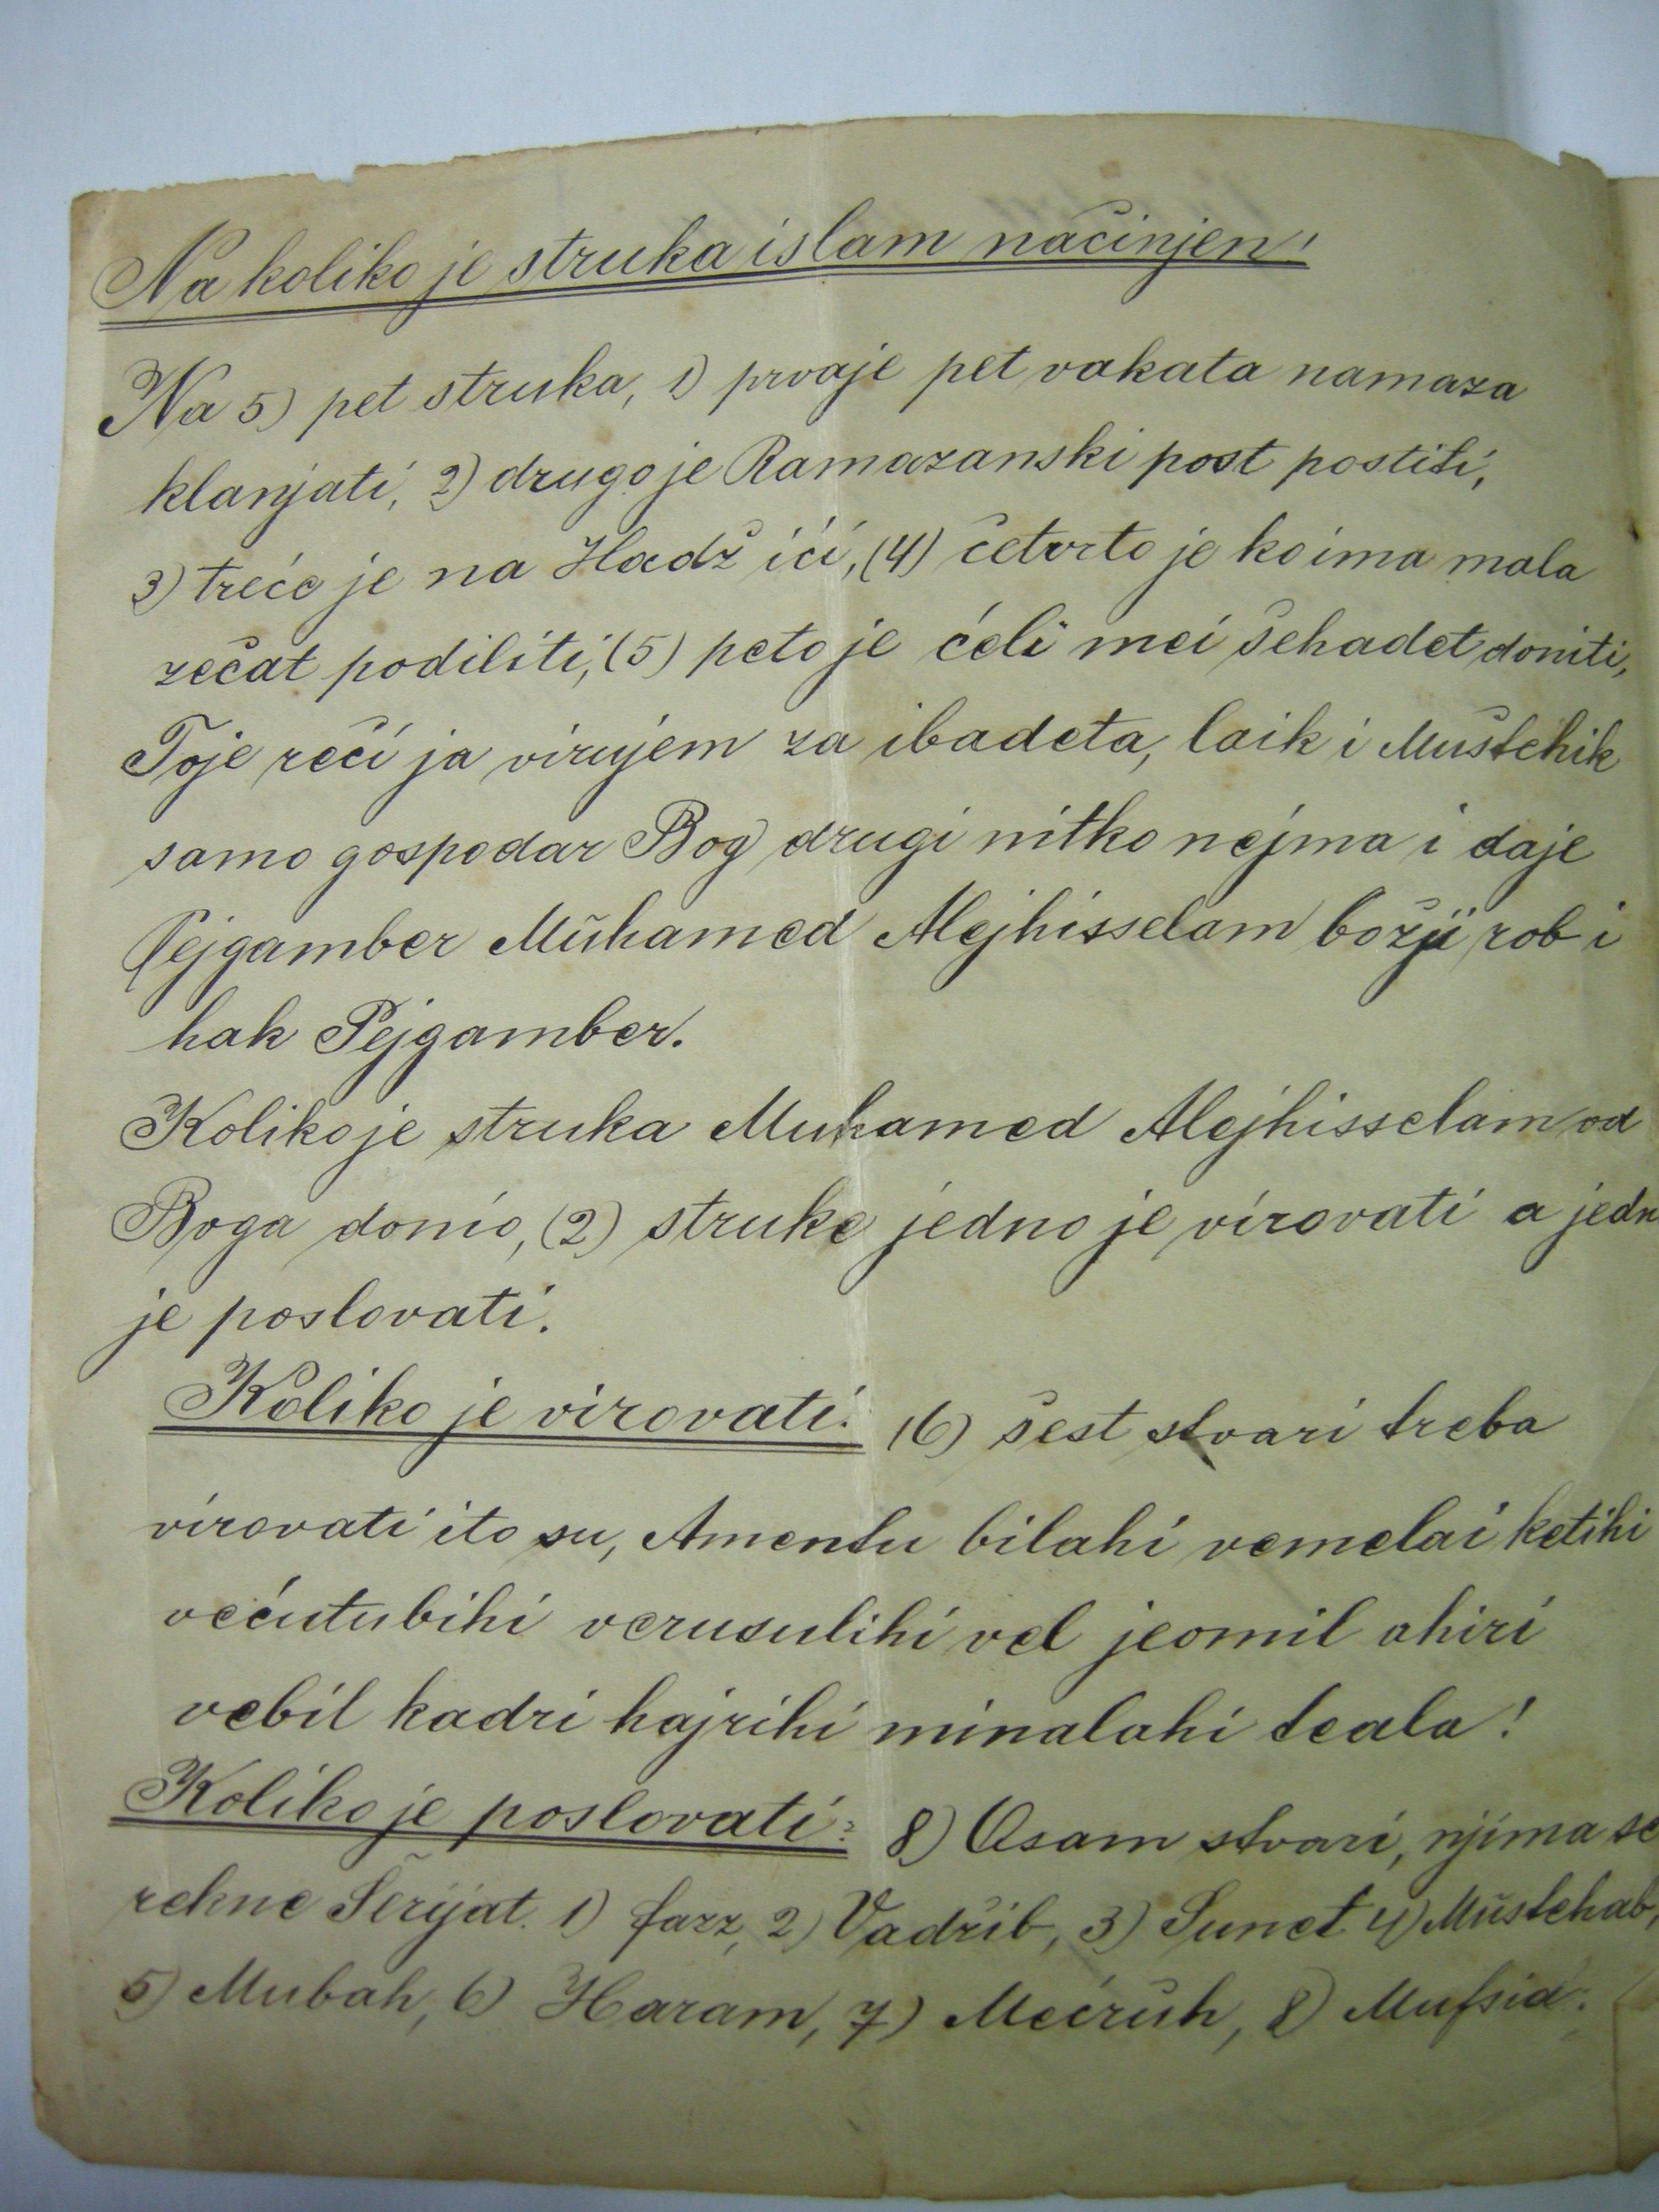 Na koliko je struka islam načinjen!
Na 5) pet struka, 1) prvaje pet vakata namaza
klanjati, 2) drugo je Ramazanski post postiti,
3) treće je na Hadž ići, (4) četvrto je ko ima mala
zećat podiliti, (5) peto je ćeli mei šehadet doniti,
Toje reći ja virujem za ibadeta, laik i Muštehik
samo gospodar Bog drugi nitko nejma i daje
Pejgamber Muhamed Alejhisselam božji rob i
hak Pejgamber.
Koliko je struka Muhamed Alejhisselam od
Boga donio, (2) struke jedno je virovati a jedn
je poslovati.
Koliko je virovati. (6) šest stvari treba
virovati ito su, Amentu bilahi vemelai ketihi
većutubihi verusulihi vel jeomil ahiri
vebil kadri hajrihi minalahi teala!
Koliko je poslovati: 8) Osam stvari, njima se
rekne Šerijat. 1) farz, 2) Vadžib, 3) Sunet. 4) Mustehab,
5) Mubah, 6) Haram, 7) Mećruh, 8) Mufsid.